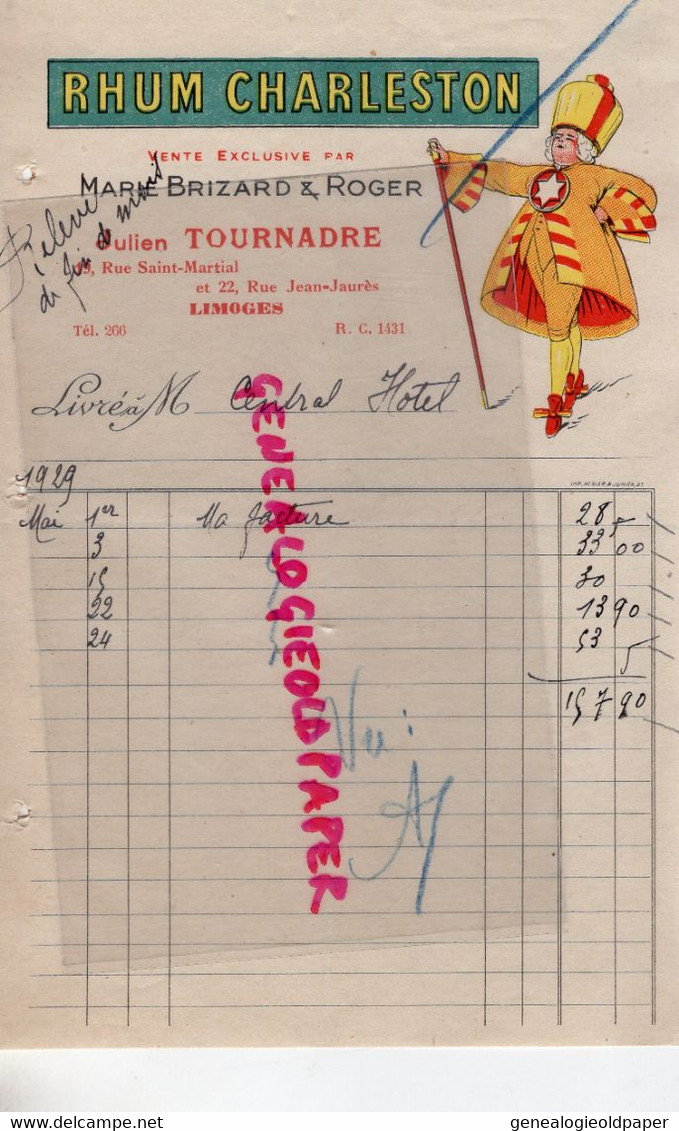 RHUM CHARLESTON
VENTE EXCLUSIVE PAR
MARIE BRIZARD & ROGER
Relevé
de fin de mois
Julien TOURNADRE
19, Rue Saint-Martial
et 22, Rue Jean-Jaurès
LIMOGES
Tél. 266 R. C. 1431
Livré à M Central Hotel
1929
Mai 1er Ma facture 28
3 33 00
15 30
22 13 90
24 53
157 90
Vu :
GENEALOGIEOLDPAPER
delcampe.net
genealogieoldpaper